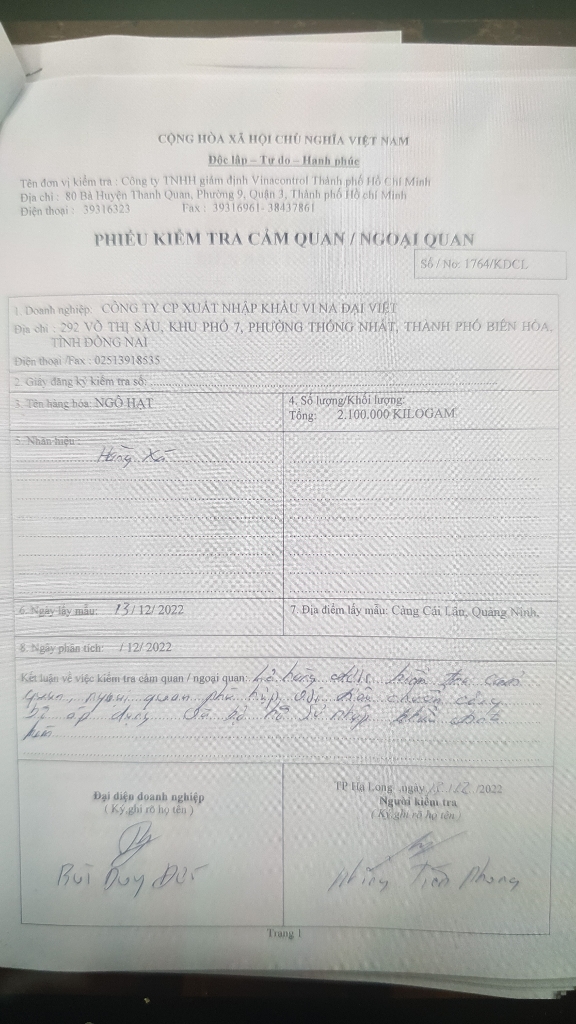 CỘNG HÒA XÃ HỘI CHỦ NGHĨA VIỆT NAM
Độc lập – Tự do – Hạnh phúc
Tên đơn vị kiểm tra : Công ty TNHH giám định Vinacontrol Thành phố Hồ Chí Minh
Địa chỉ : 80 Bà Huyện Thanh Quan, Phường 9, Quận 3, Thành phố Hồ chí Minh
Điện thoại : 39316323 Fax : 39316961- 38437861
PHIẾU KIỂM TRA CẢM QUAN / NGOẠI QUAN
Số / No: 1764/KDCL
1. Doanh nghiệp: CÔNG TY CP XUẤT NHẬP KHẨU VI NA ĐẠI VIỆT
Địa chỉ : 292 VÕ THỊ SÁU, KHU PHỐ 7, PHƯỜNG THỐNG NHẤT, THÀNH PHỐ BIÊN HÒA,
TỈNH ĐỒNG NAI
Điện thoại /Fax : 02513918535
2. Giấy đăng ký kiểm tra số:
3. Tên hàng hóa: NGÔ HẠT
4. Số lượng/Khối lượng:
Tổng: 2.100.000 KILOGAM
5. Nhãn hiệu :
Hàng Xá
6. Ngày lấy mẫu: 13/ 12/ 2022
7. Địa điểm lấy mẫu: Cảng Cái Lân, Quảng Ninh.
8. Ngày phân tích: / 12/ 2022
Kết luận về việc kiểm tra cảm quan / ngoại quan: Lô hàng được kiểm tra cảm
quan, ngoại quan phù hợp với tiêu chuẩn công
bố áp dụng và hồ sơ nhập khẩu đính
kèm
Đại diện doanh nghiệp
( Ký,ghi rõ họ tên )
Bùi Duy Đức
TP Hạ Long ,ngày /12/2022
Người kiểm tra
( Ký,ghi rõ họ tên )
Tiến Phong
Trang 1